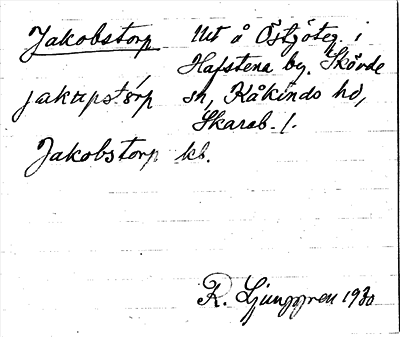 Jakobstorp Ut å Östgöteg. i
Hafstena by. Skövde
jakɯpstórp sn, Kåkinds hd,
Skarab. l.
Jakobstorp kb.
R. Ljunggren 1930